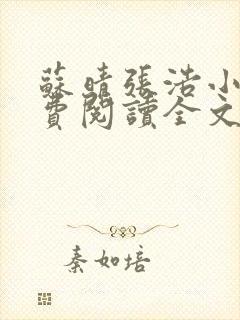 蘇晴張浩小
費閱讀全文
秦如培